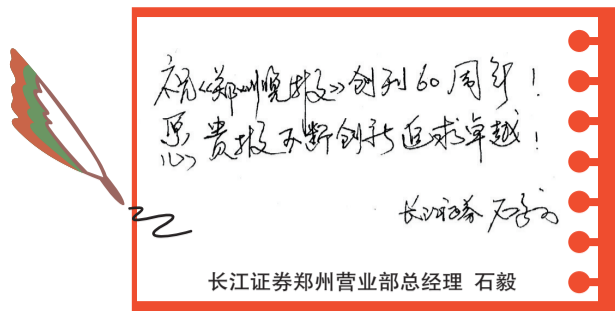 祝《郑州晚报》创刊60周年！
愿贵报不断创新追求卓越！
长江证券 石毅
长江证券郑州营业部总经理 石毅